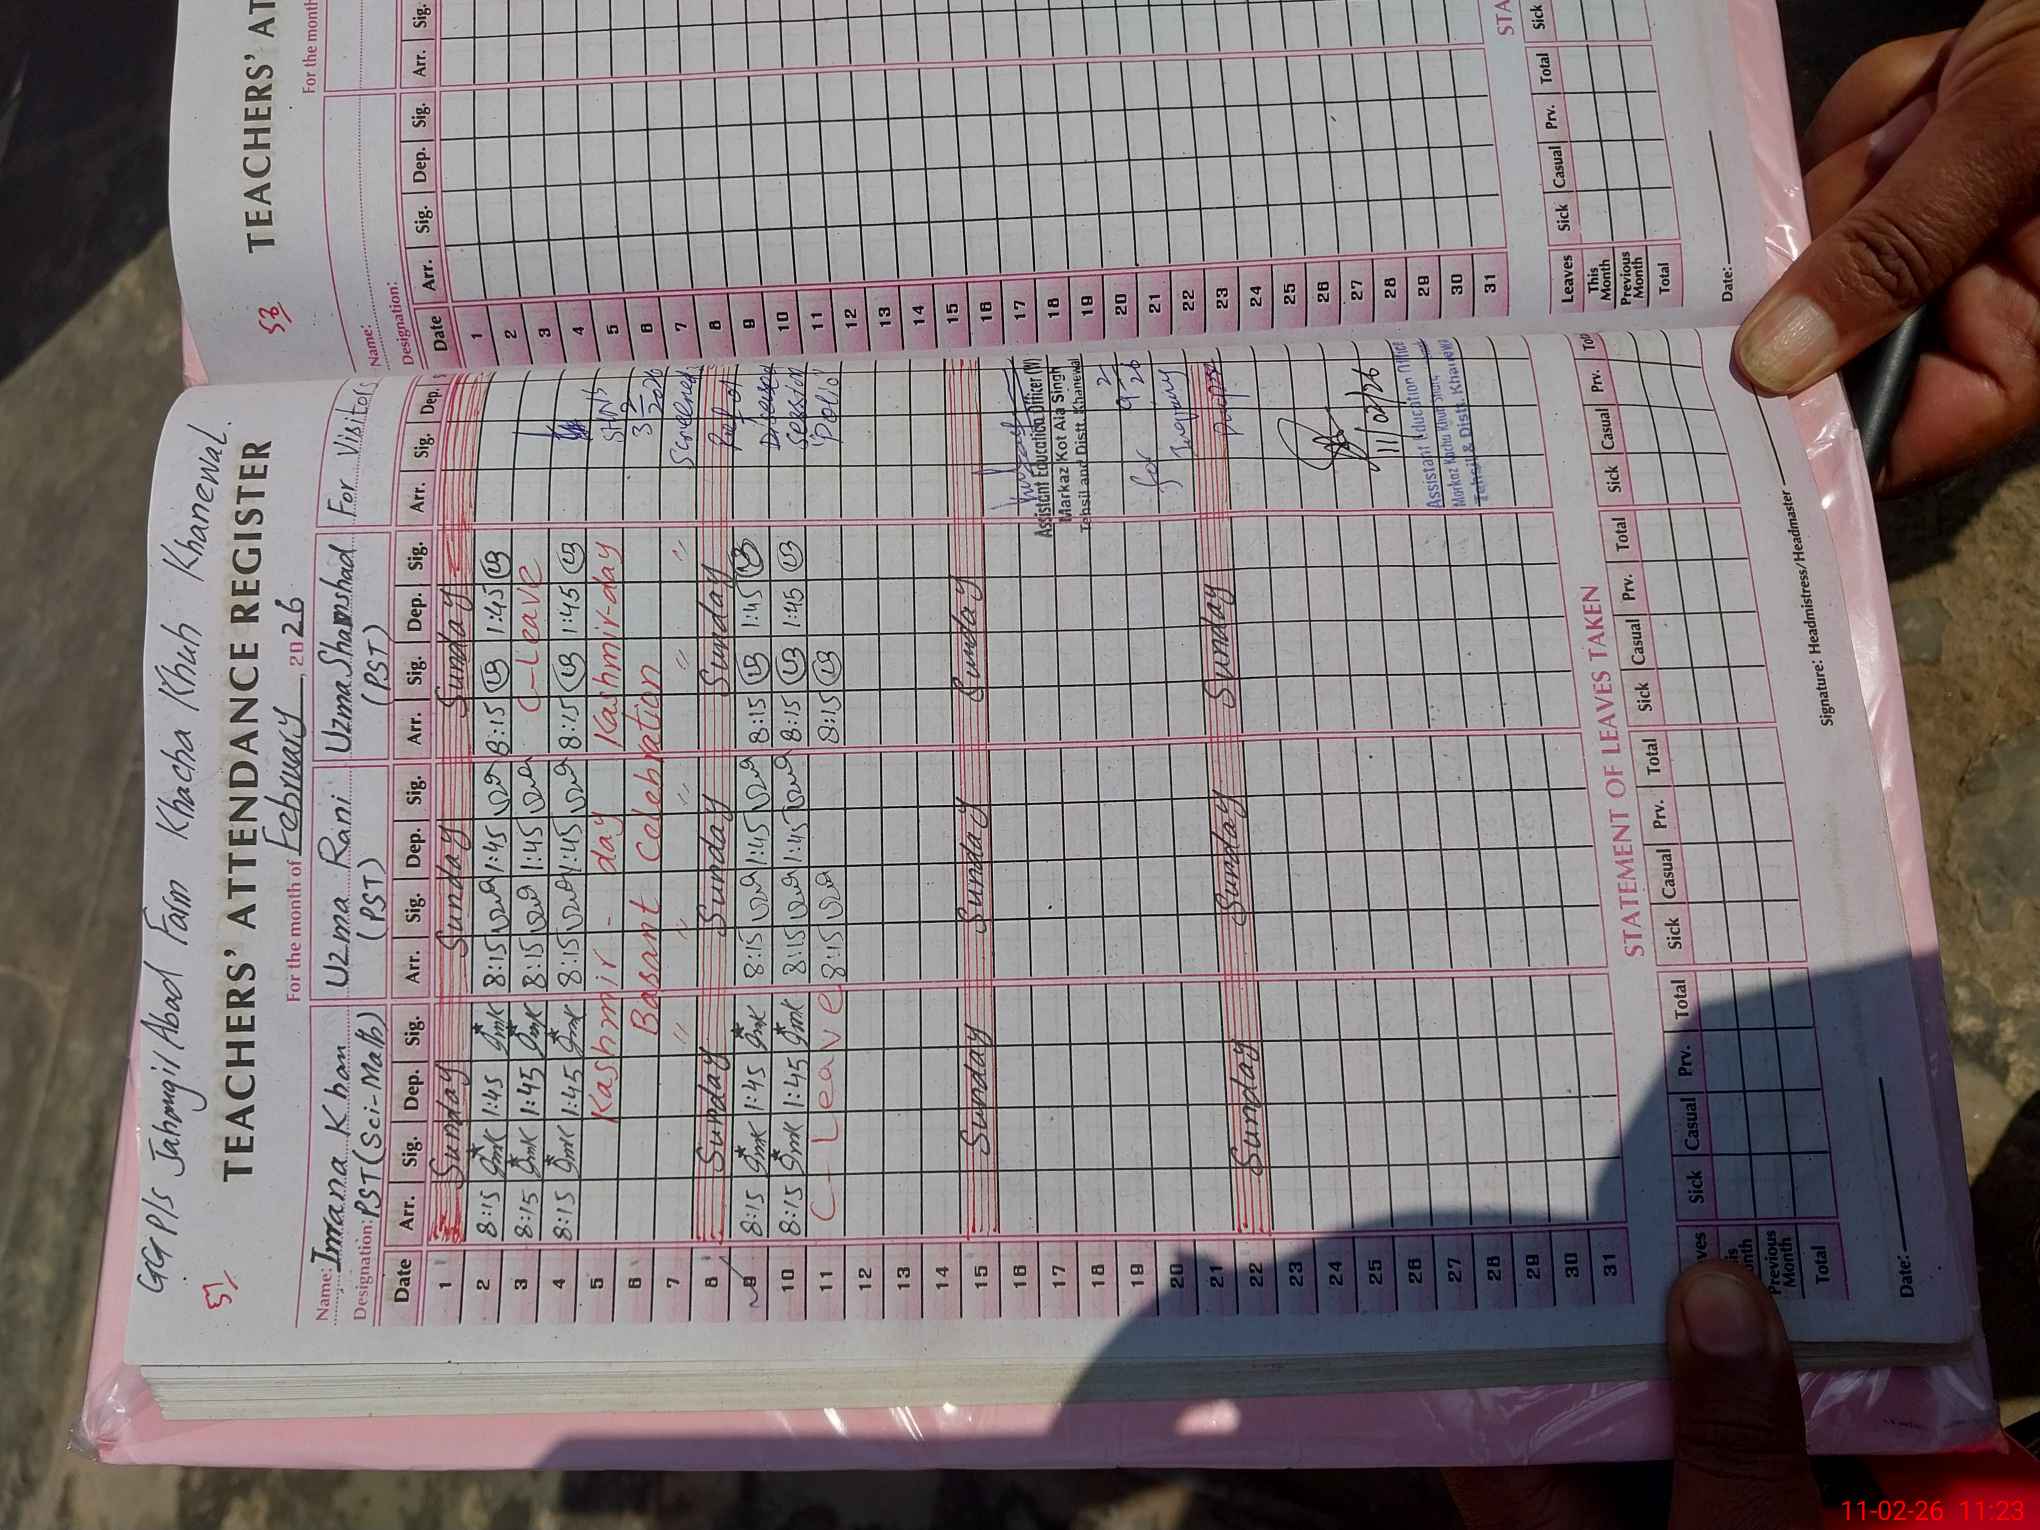 GGPS Jahangir Abad Farm Khacha Khuh Khanewal.
51
TEACHERS' ATTENDANCE REGISTER
For the month of February, 2026
Name: Imrana Khan Uzma Rani Uzma Shamshad For Visitors
Designation: PST (Sci-Math) (PST) (PST)
Date Arr. Sig. Dep. Sig. Arr. Sig. Dep. Sig. Arr. Sig. Dep. Sig. Arr. Sig. Dep.
1 Sunday Sunday Sunday
2 8:15 1:45 8:15 1:45 8:15 1:45
3 8:15 1:45 8:15 1:45 C-Leave
4 8:15 1:45 8:15 1:45 8:15 1:45
5 Kashmir-day Kashmir-day
6 Basant Celebration
7 " " " " " "
8 Sunday Sunday Sunday
9 8:15 1:45 8:15 1:45 8:15 1:45
10 8:15 1:45 8:15 1:45 8:15 1:45
11 C-Leave 8:15 8:15
12
13
14
15 Sunday Sunday Sunday
16
17
18
19
20
21
22 Sunday Sunday Sunday
23
24
25
26
27
28
29
30
31
Screened
Disease
Session
"Polio"
Assistant Education Officer (W)
Markaz Kot Ala Singh
Tehsil and Distt. Khanewal
9/2/26
for
11/02/26
Assistant Education Officer
Markaz Kacha Khuh
Tehsil & Distt. Khanewal
STATEMENT OF LEAVES TAKEN
Sick Casual Prv. Total Sick Casual Prv. Total Sick Casual Prv. Total Sick Casual Prv.
Previous Month
Total
Date:
Signature: Headmistress/Headmaster
52
TEACHERS' AT
For the month
Name:
Designation:
Date Arr. Sig. Dep. Sig. Arr. Sig.
1
2
3
4
5
6
7
8
9
10
11
12
13
14
15
16
17
18
19
20
21
22
23
24
25
26
27
28
29
30
31
STA
Leaves Sick Casual Prv. Total Sick
This Month
Previous Month
Total
Date:
11-02-26 11:23